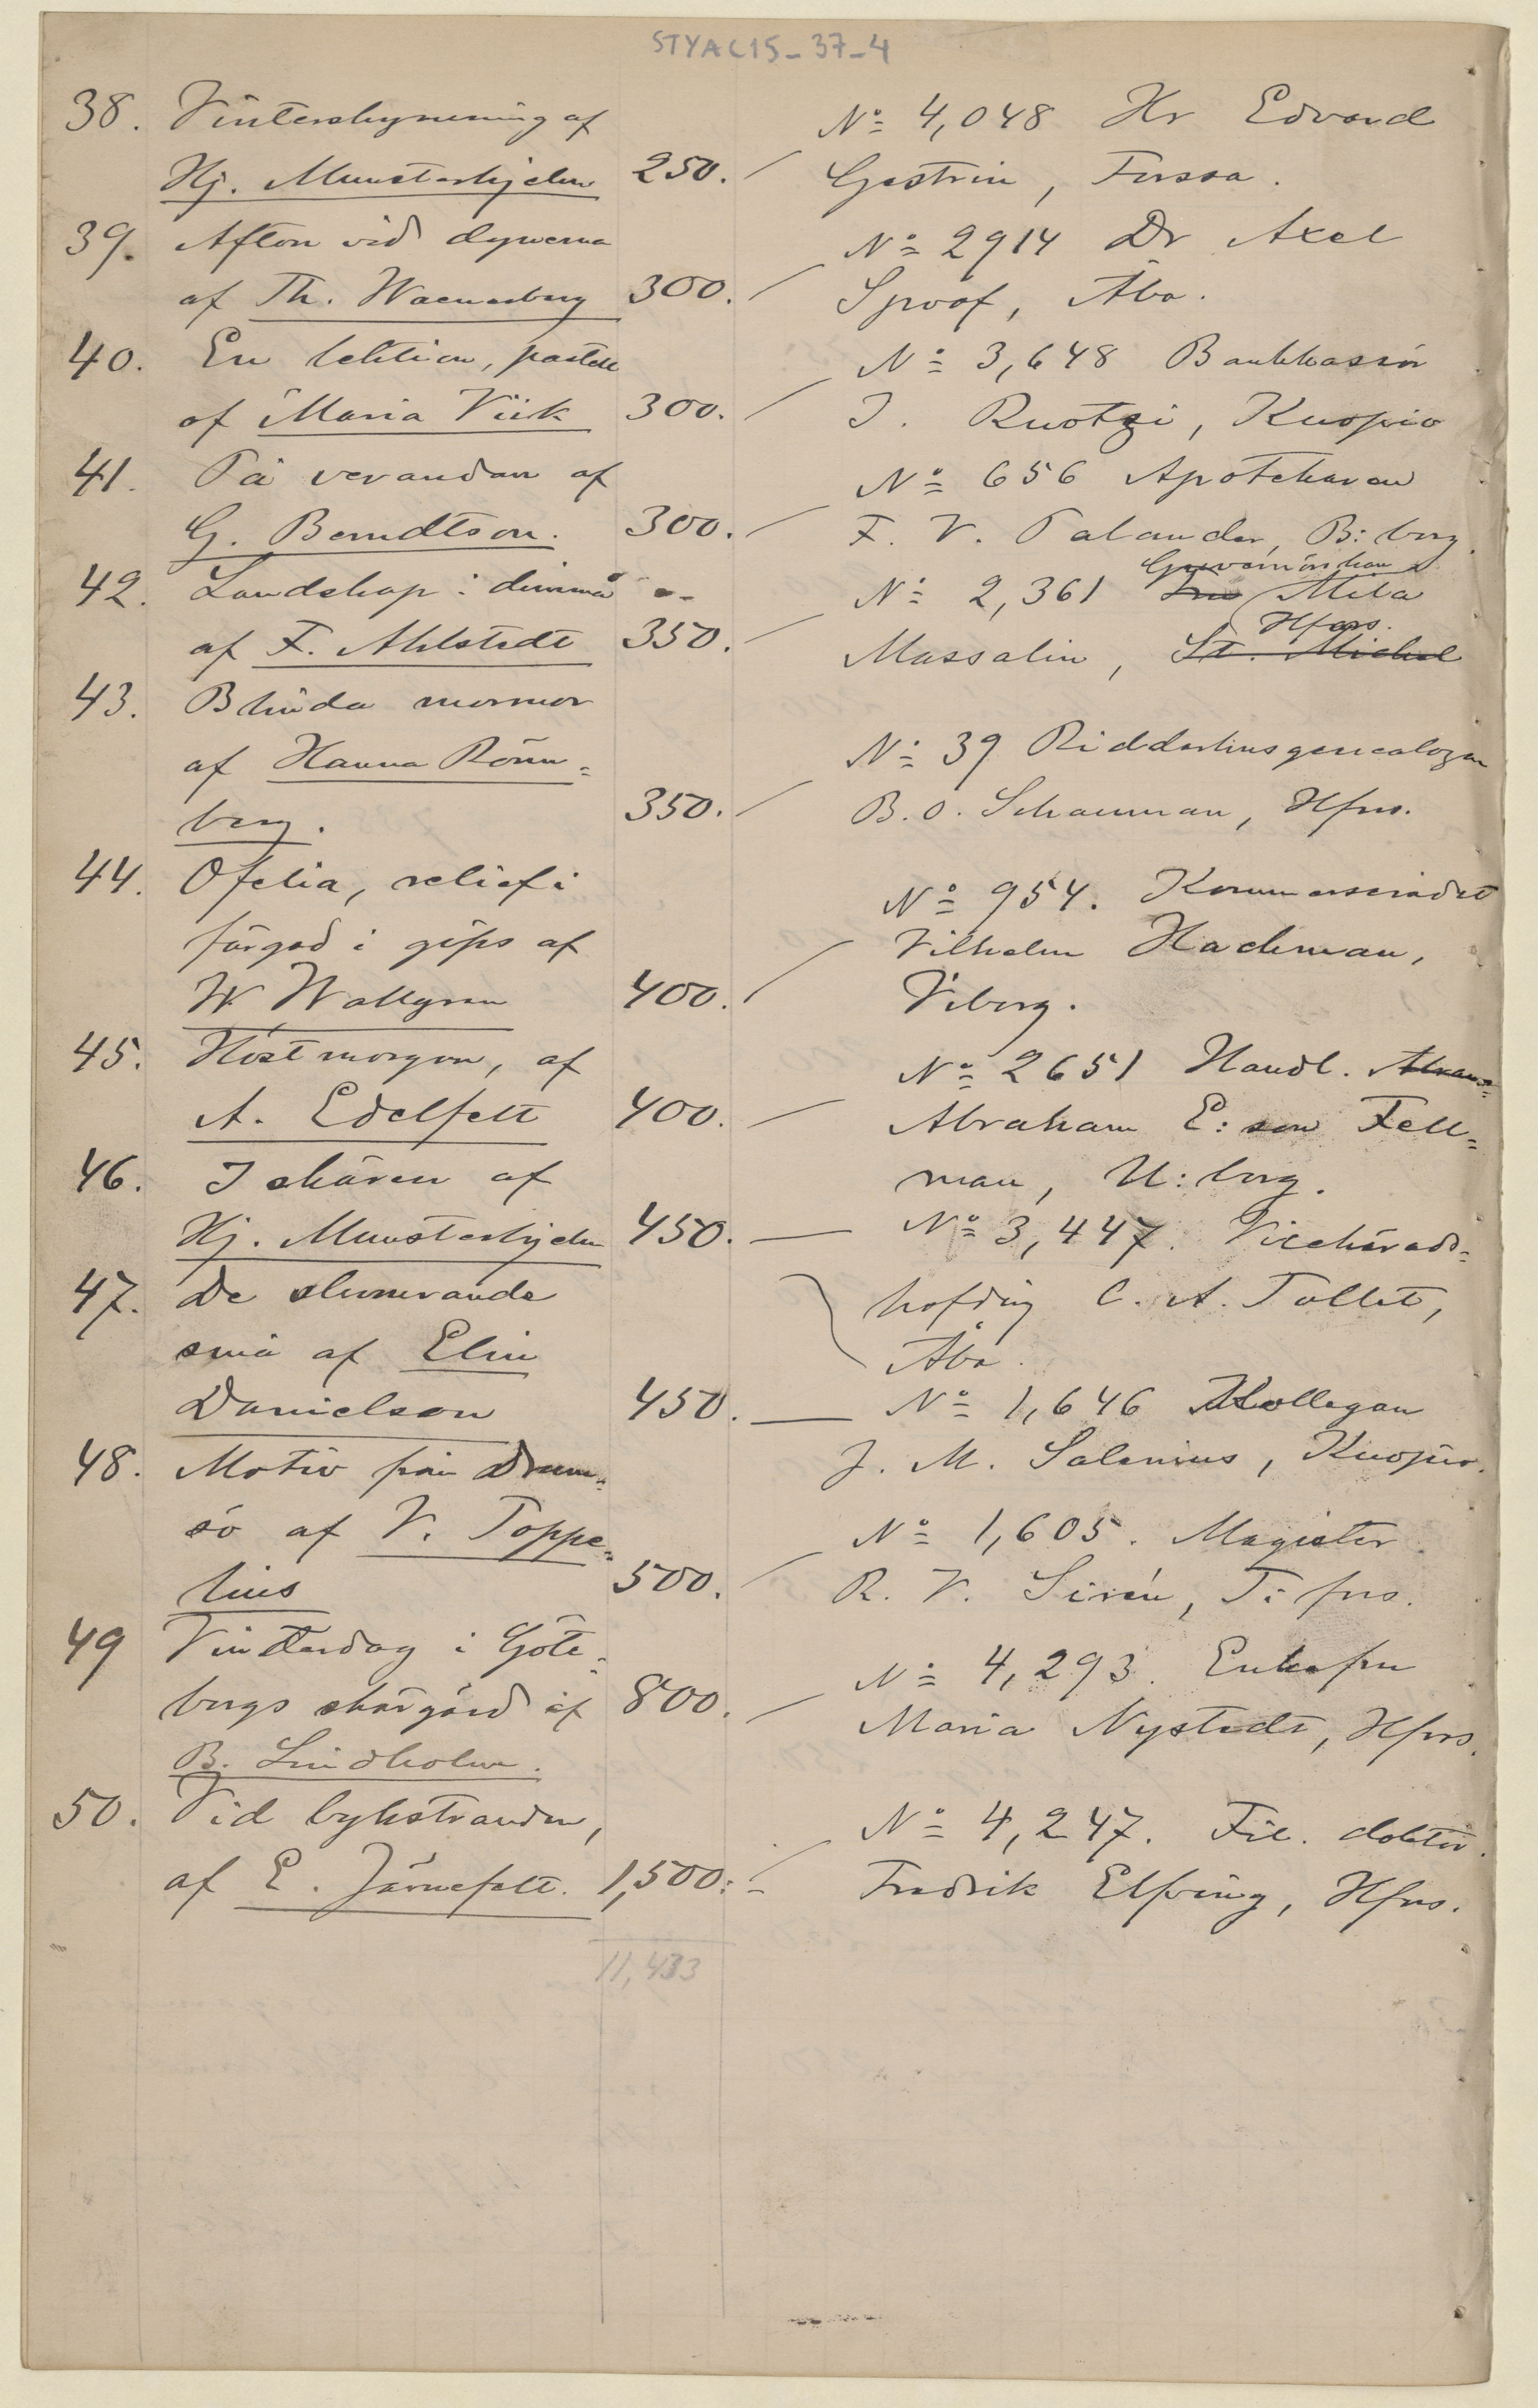 STYAC15-37-4
38. Vinterskymning af
Hj. Munsterhjelm 250.
Nº 4,048 Hr Edvard
Gestrin, Forssa.
39. Afton vid dynerna
af Th. Waenerberg 300.
Nº 2914 Dr Axel
Spoof, Åbo.
40. En lektion, pastell
af Maria Viik 300.
Nº 3,648 Bankkassör
J. Ruotzi, Kuopio
41. På verandan af
G. Berndtson. 300.
Nº 656 Apotekaren
F. V. Palander, B:borg.
42. Landskap i dimma
af F. Ahlstedt 350.
Guvernörskan
Nº 2,361 Fru Mila
Hfors.
Massalin, St. Michel
43. Blinda mormor
af Hanna Rönn=
berg. 350.
Nº 39 Riddarhusgenealogen
B. O. Schauman, Hfrs.
44. Ofelia, relief i
färgad i gips af
W Wallgren 400.
Nº 954. Kommerserådet
Vilhelm Hackman,
Viborg.
45. Höstmorgon, af
A. Edelfelt 400.
Nº 2651 Handl. Abram=
Abraham E:son Fell=
man, U:borg.
46. I skären af
Hj. Munsterhjelm 450.
Nº 3,447. Vicehärads=
höfding C. A. Tollet,
Åbo.
47. De slumrande
små af Elin
Danielson 450.
Nº 1,646 Kollegan
J. M. Salenius, Kuopio.
48. Motiv från Drum=
sö af V. Toppe=
lius 500.
Nº 1,605. Magister
R. V. Sirén, T:frs.
49 Vinterdag i Göte=
borgs skärgård af 800.
B. Lindholm.
Nº 4,293. Enkefru
Maria Nystedt, Hfrs.
50. Vid bykstranden,
af E. Järnefelt. 1,500:-
Nº 4,247. Fil. doktor.
Fredrik Elfving, Hfrs.
11,433